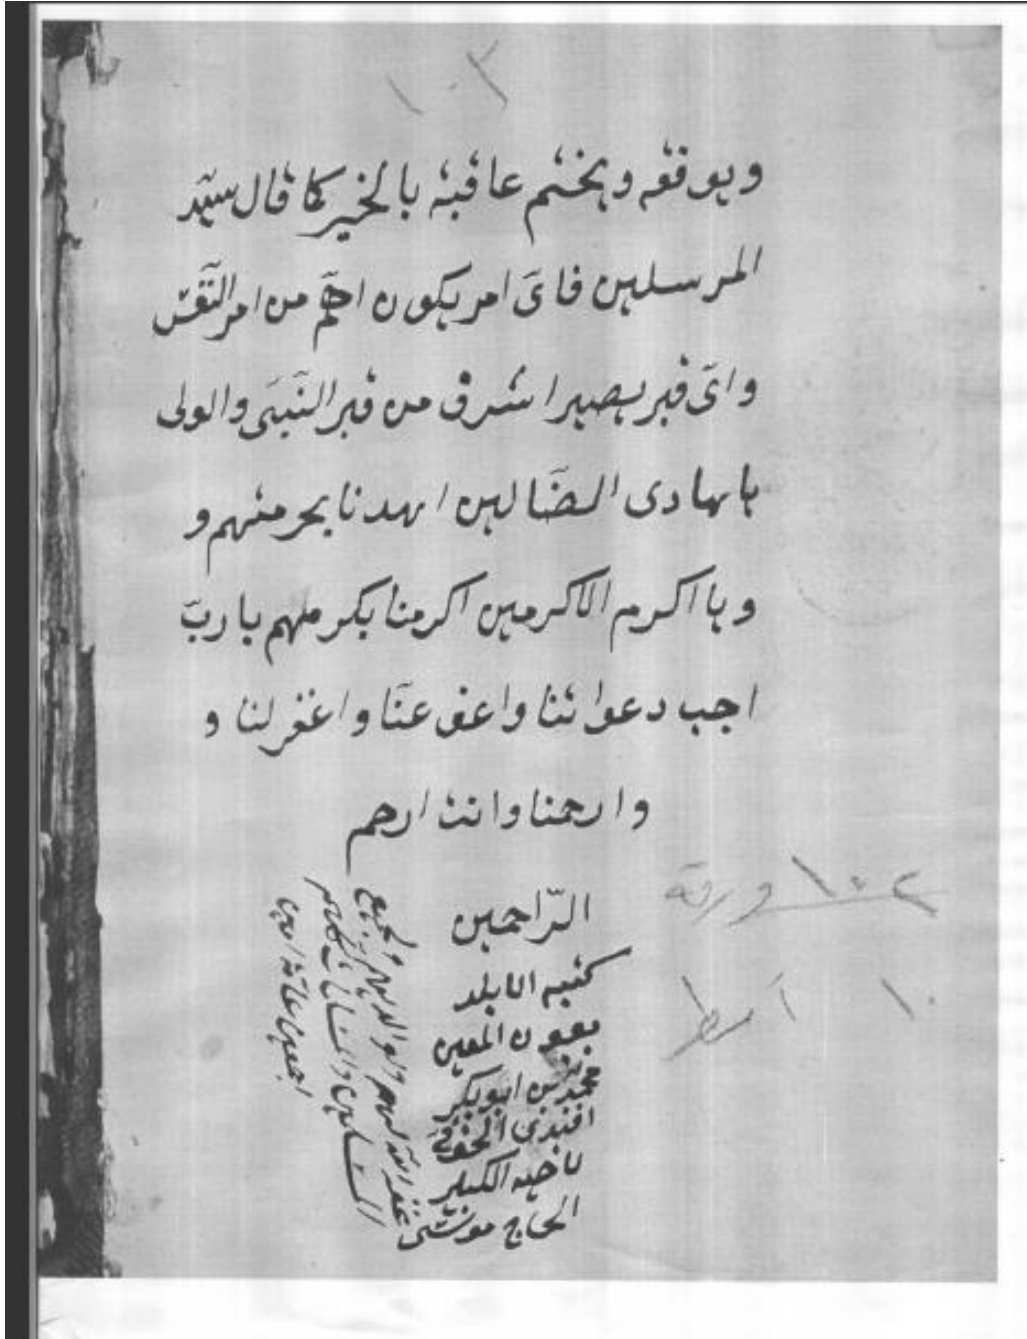 ١٠٢
ويوفقه ويختم عاقبة بالخير كما قال سيد
المرسلين فاىّ امر يكون اهمّ من امر النّفس
واىّ قبر يصير اشرف من قبر النّبىّ والولى
يا هادى الضّالين اهدنا بحرمتهم و
ويا اكرم الاكرمين اكرمنا بكرمهم يا ربّ
اجب دعواتنا واعف عنّا واغفر لنا و
وارحمنا وانت ارحم
الرّاحمين
كتبه
بعون المعين
محمد بن ابوبكر
افندى
الحاج
غفر الله لهم ولوالديهم ولجميع
المسلمين والمسلمات
اجمعين امين
١٠٢ ورقة
١٠ اسطر